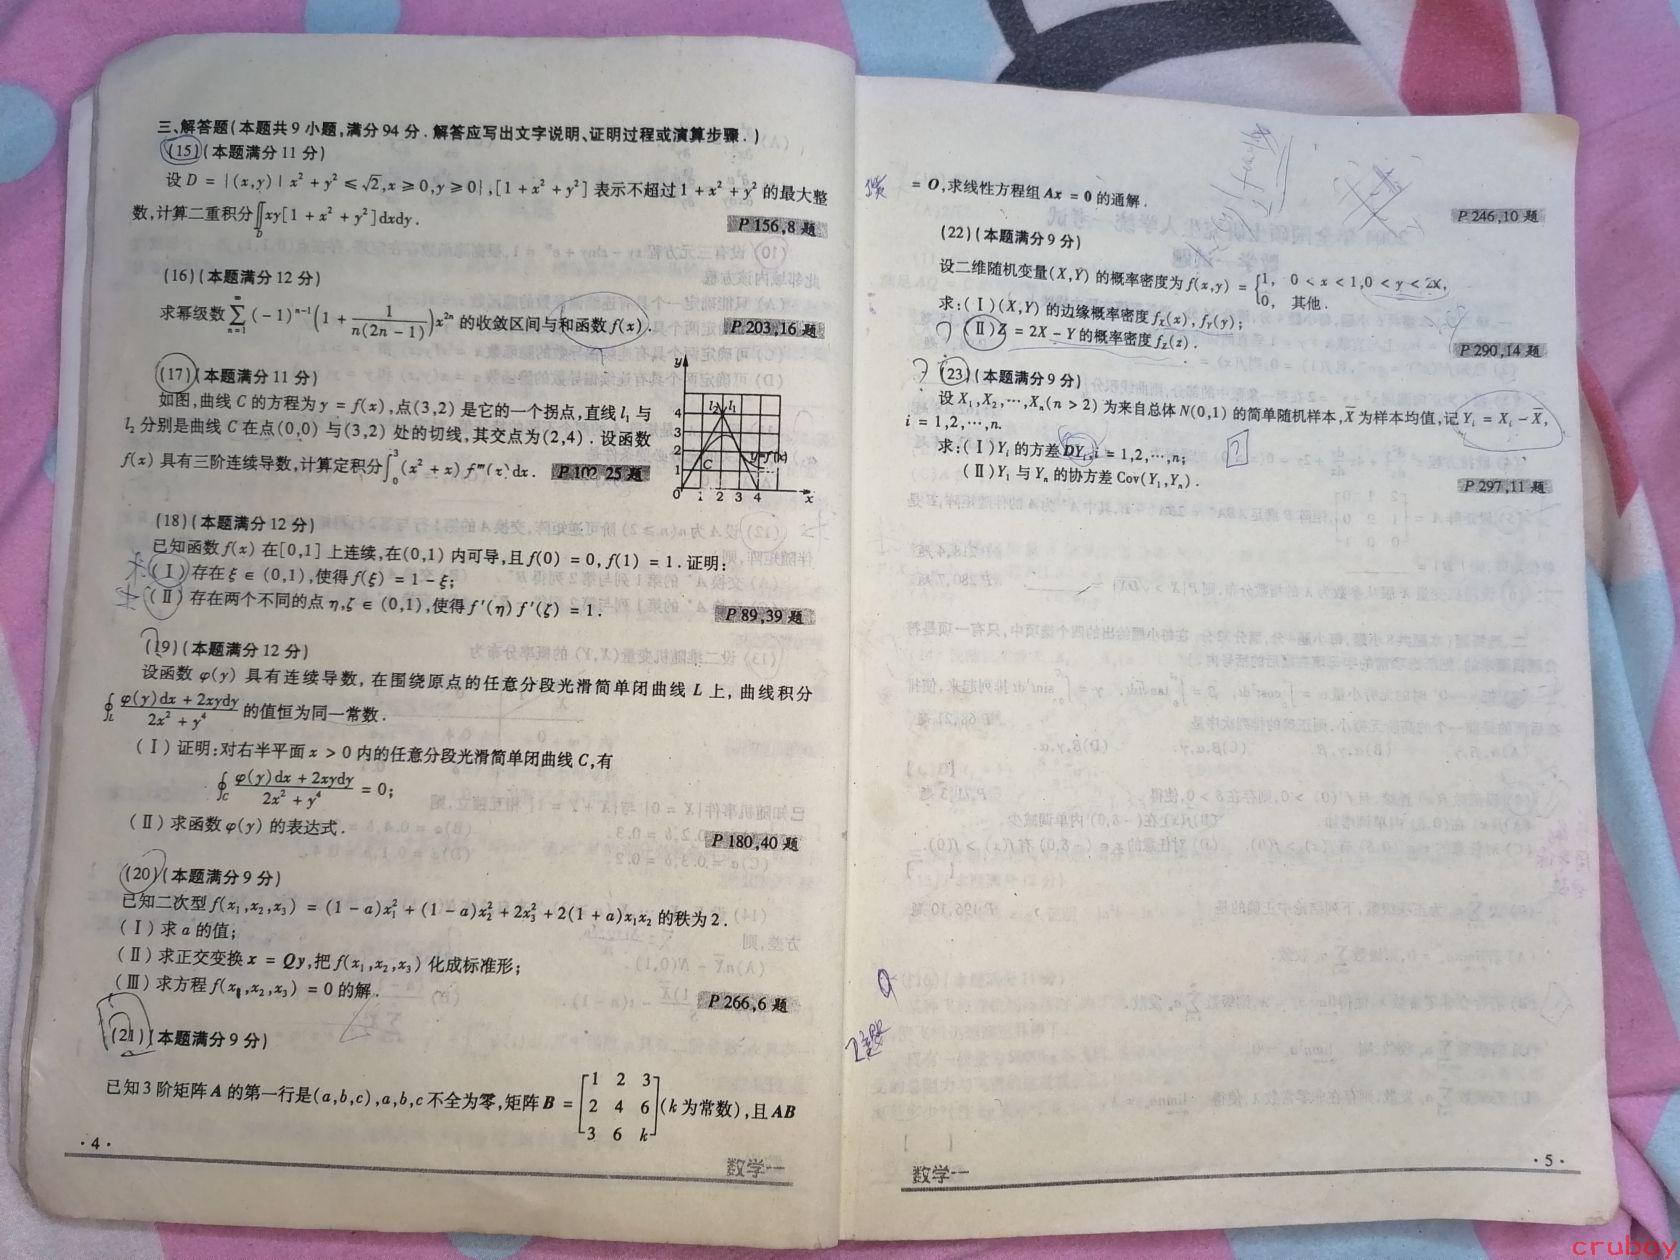 三、解答题(本题共9小题,满分94分.解答应写出文字说明、证明过程或演算步骤.)
(15)(本题满分11分)
设 D = {(x,y) | x² + y² ≤ √2, x ≥ 0, y ≥ 0}, [1 + x² + y²] 表示不超过 1 + x² + y² 的最大整
数,计算二重积分∬_D xy[1 + x² + y²]dxdy.
P 156,8 题
(16)(本题满分12分)
求幂级数 ∑_{n=1}^{∞} (-1)^{n-1}(1 + 1/(n(2n-1)))x^{2n} 的收敛区间与和函数 f(x).
P 203,16 题
(17)(本题满分11分)
如图,曲线 C 的方程为 y = f(x),点(3,2)是它的一个拐点,直线 l₁ 与
l₂ 分别是曲线 C 在点(0,0)与(3,2)处的切线,其交点为(2,4).设函数
f(x) 具有三阶连续导数,计算定积分∫_0^3 (x² + x) f‴(x)dx.
P 102,25 题
y
4 l₂ l₁
3
2 y=f(x)
1 C
0 1 2 3 4 x
(18)(本题满分12分)
已知函数 f(x) 在[0,1]上连续,在(0,1)内可导,且 f(0) = 0, f(1) = 1. 证明:
(Ⅰ) 存在 ξ ∈ (0,1),使得 f(ξ) = 1 - ξ;
(Ⅱ) 存在两个不同的点 η,ζ ∈ (0,1),使得 f′(η) f′(ζ) = 1.
P 89,39 题
(19)(本题满分12分)
设函数 φ(y) 具有连续导数,在围绕原点的任意分段光滑简单闭曲线 L 上,曲线积分
∮_L (φ(y)dx + 2xydy)/(2x² + y⁴) 的值恒为同一常数.
(Ⅰ) 证明:对右半平面 x > 0 内的任意分段光滑简单闭曲线 C,有
∮_C (φ(y)dx + 2xydy)/(2x² + y⁴) = 0;
(Ⅱ) 求函数 φ(y) 的表达式.
P 180,40 题
(20)(本题满分9分)
已知二次型 f(x₁,x₂,x₃) = (1 - a)x₁² + (1 - a)x₂² + 2x₃² + 2(1 + a)x₁x₂ 的秩为2.
(Ⅰ) 求 a 的值;
(Ⅱ) 求正交变换 x = Qy,把 f(x₁,x₂,x₃) 化成标准形;
(Ⅲ) 求方程 f(x₁,x₂,x₃) = 0 的解.
P 266,6 题
(21)(本题满分9分)
已知3阶矩阵 A 的第一行是(a,b,c),a,b,c 不全为零,矩阵 B = [1 2 3; 2 4 6; 3 6 k] (k 为常数),且 AB
·4·
数学一
= O,求线性方程组 Ax = 0 的通解.
P 246,10 题
(22)(本题满分9分)
设二维随机变量(X,Y)的概率密度为 f(x,y) = {1, 0 < x < 1, 0 < y < 2x,
0, 其他.
求:(Ⅰ)(X,Y)的边缘概率密度 f_X(x), f_Y(y);
(Ⅱ) Z = 2X - Y 的概率密度 f_Z(z).
P 290,14 题
(23)(本题满分9分)
设 X₁,X₂,⋯,Xₙ(n > 2)为来自总体 N(0,1)的简单随机样本,X̄ 为样本均值,记 Yᵢ = Xᵢ - X̄,
i = 1,2,⋯,n.
求:(Ⅰ) Yᵢ 的方差 DYᵢ, i = 1,2,⋯,n;
(Ⅱ) Y₁ 与 Yₙ 的协方差 Cov(Y₁,Yₙ).
P 297,11 题
·5·
数学一
cruboy